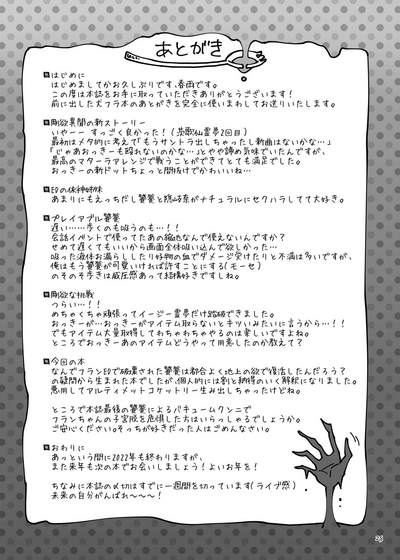 あとがき
■はじめに
はじめましてかお久しぶりです、春雨です。
この度は本誌をお手に取っていただきありがとうございます！
前に出した犬フラ本のあとがきを完全に使いまわしてお送りいたします。
■剛欲異聞の新ストーリー
いやーー すっごく良かった！
最初はメタ的に考えて「もうサントラ出しちゃったし新曲はないかな…」
「じゃあおっきーも殴れないのかな…」とやや諦め気味でいたんですが、
最高のマターラアレンジで戦うことができてとても満足でした。
おっきーの新ドットちょっと間抜けでかわいいね…
あまりにもえっちだし饕餮と隠岐奈がナチュラルにセクハラしてて大好き。
■プレイアブル饕餮
遅い……歩くのも吸うのも…！！
会話イベントで使ってたあの縮地なんで使えないんですか？
せめて遅くてもいいから画面全体吸い込んで欲しかった…
吸った液体お漏らししたり好物の血でダメージ受けたりと不満は多いですが、
俺はもう饕餮が可愛いければ許すことにする(モーセ)
あのそのそ歩きは威圧感あって結構好きですしね。
■剛欲な挑戦
つらい…！！
めちゃくちゃ頑張ってイージー霊夢だけ踏破できました。
おっきーが…おっきーがアイテム取らないとチッみたいに言うから…！！
でもアイテム大量取得してわちゃわちゃやるのは楽しいですよね。
ところでおっきーあのアイテムどうやって用意したのか教えて？
■今回の本
なんでフラン印で破壊された饕餮は都合よく地上の獄で復活したんだろう？
の疑問から生まれた本でしたが、個人的には割と納得のいく解釈になりました。
悪用してアルティメットコケットリー生み出しちゃったけどね。
ところで本誌最後の饕餮によるバキュームクンニで
フランちゃんの子宮脱を危惧した方はいらっしゃるでしょうか。
ご安心ください。そっちが好きだった人はごめんなさい。
■おわりに
あっという間に2022年も終わりますが、
また来年も次の本でお会いしましょう！よいお年を！
ちなみに本誌の〆切はすでに一週間を切っています(ライブ感)
未来の自分がんばれ〜〜〜！
25